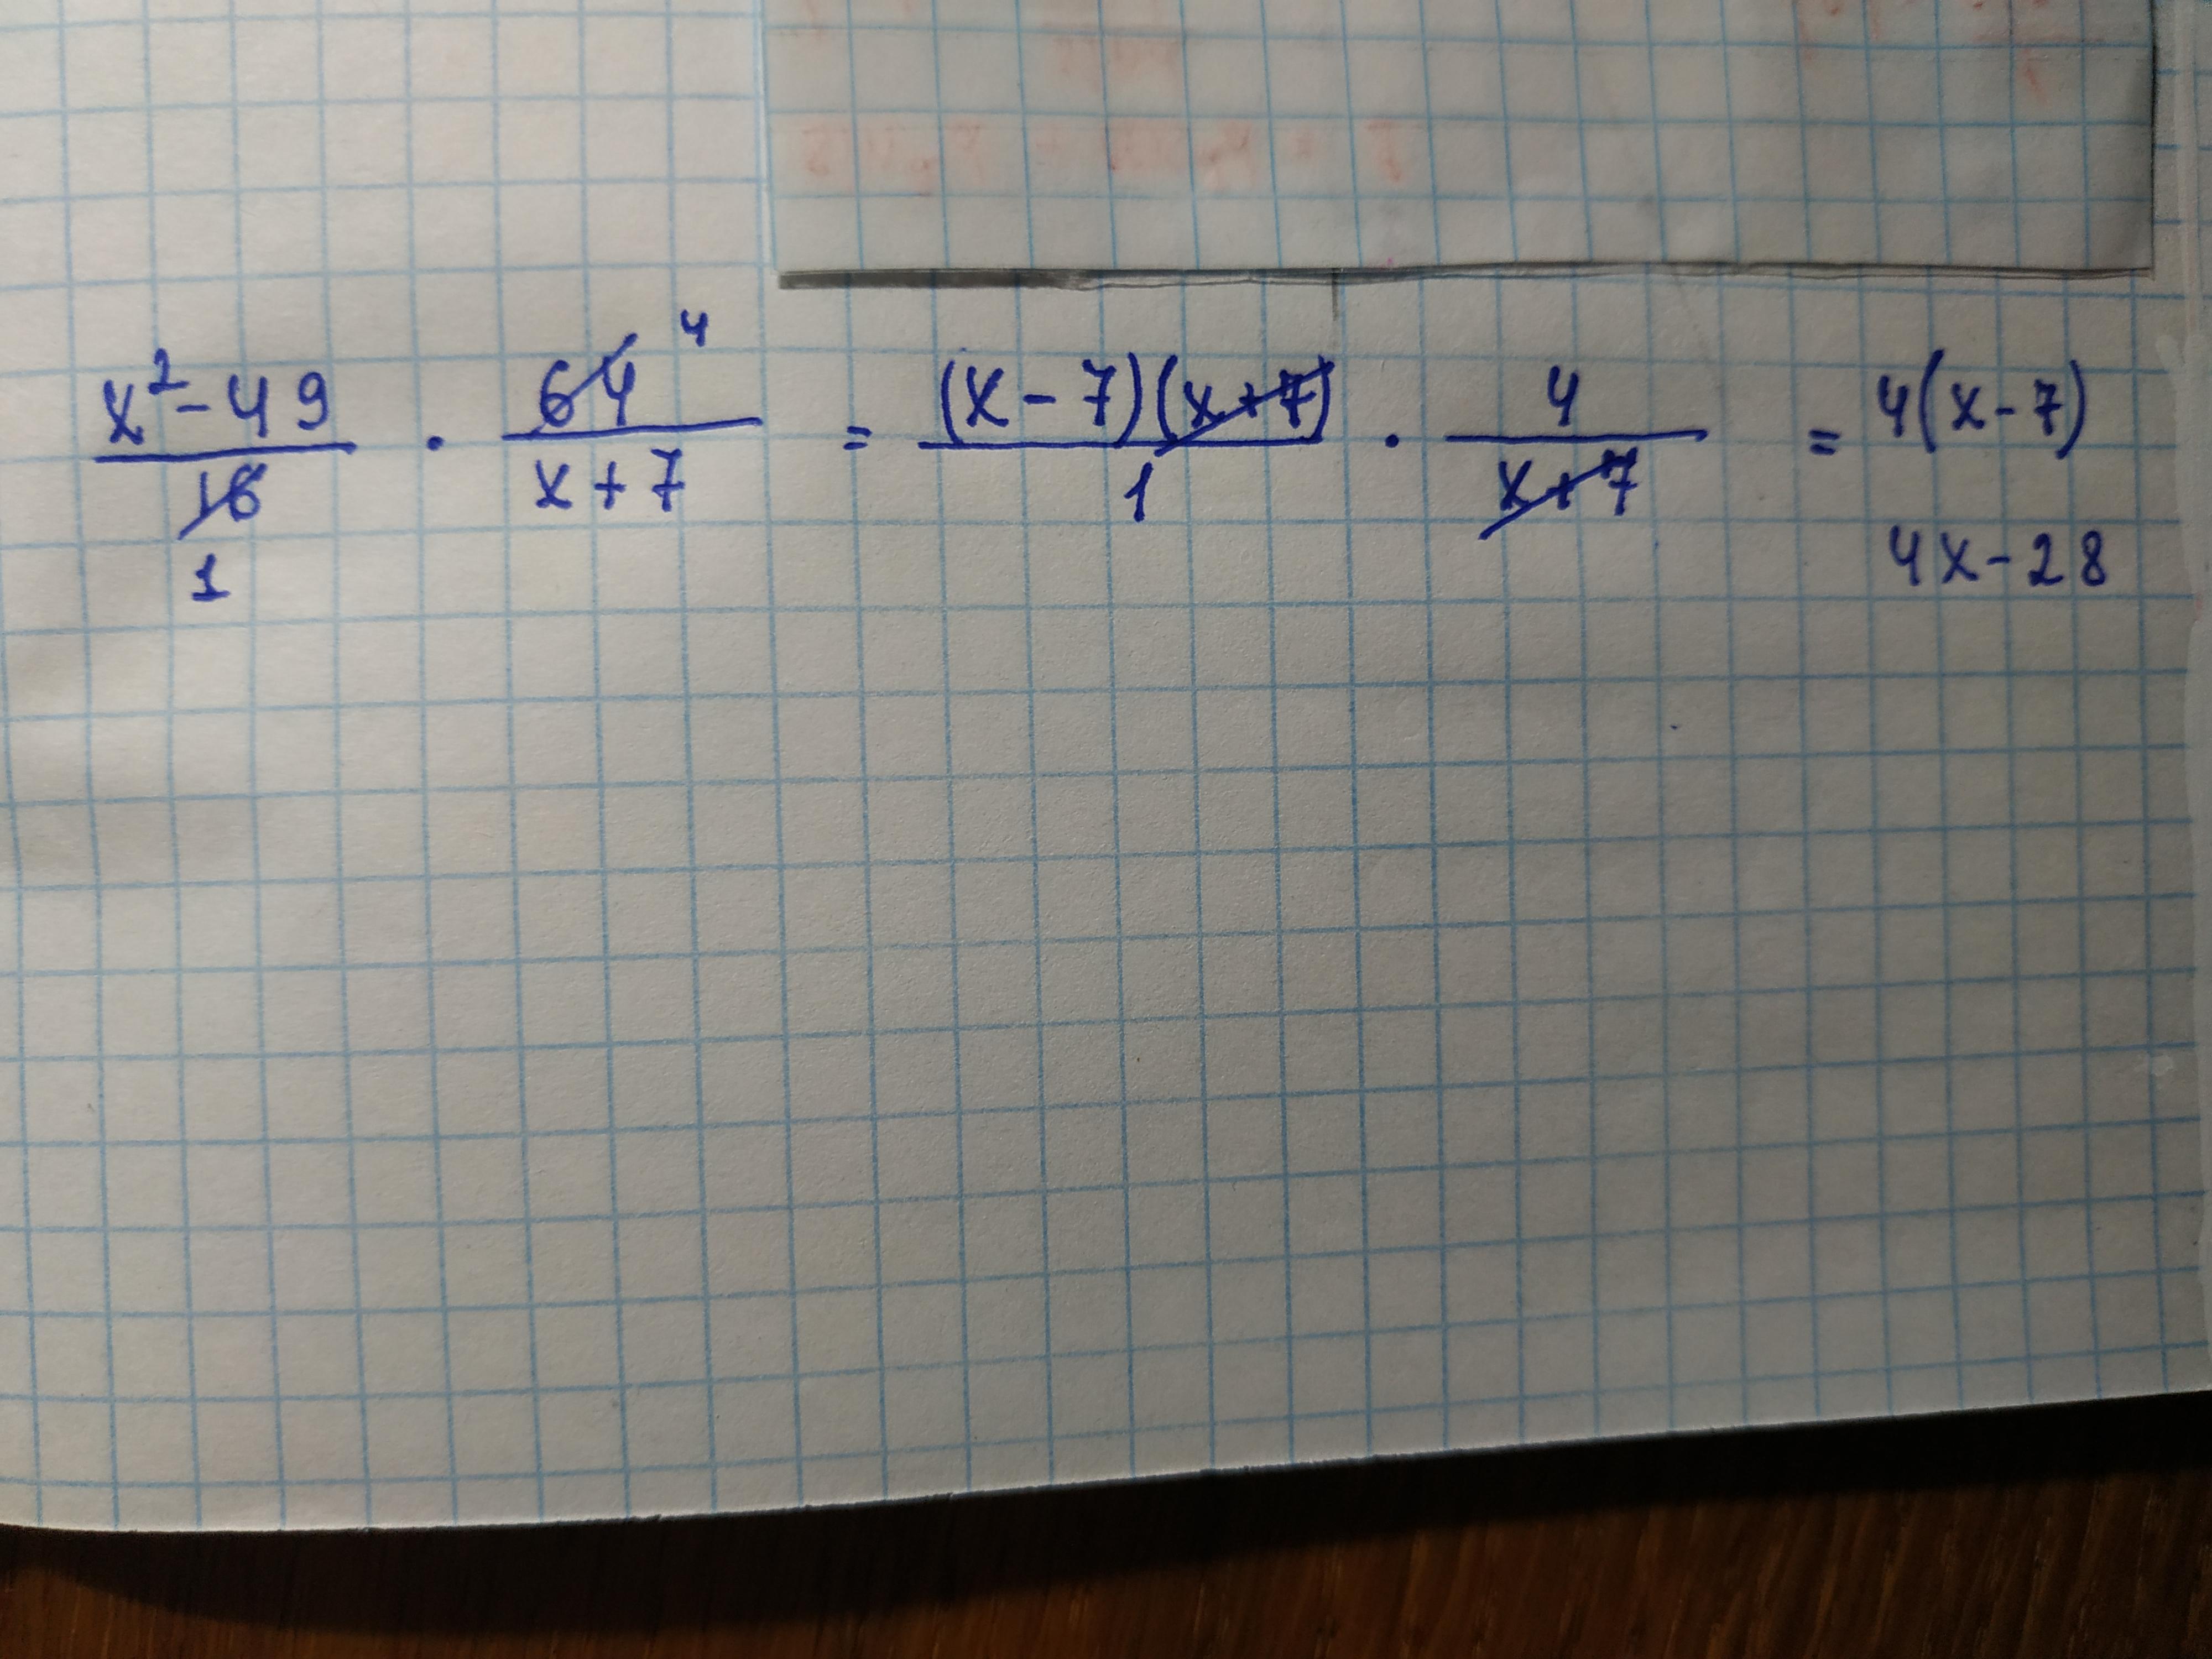 x² - 49 / 16 · 64 4 / x + 7 = (x - 7)(x + 7) / 1 · 4 / x + 7 = 4(x - 7)
1
4x - 28